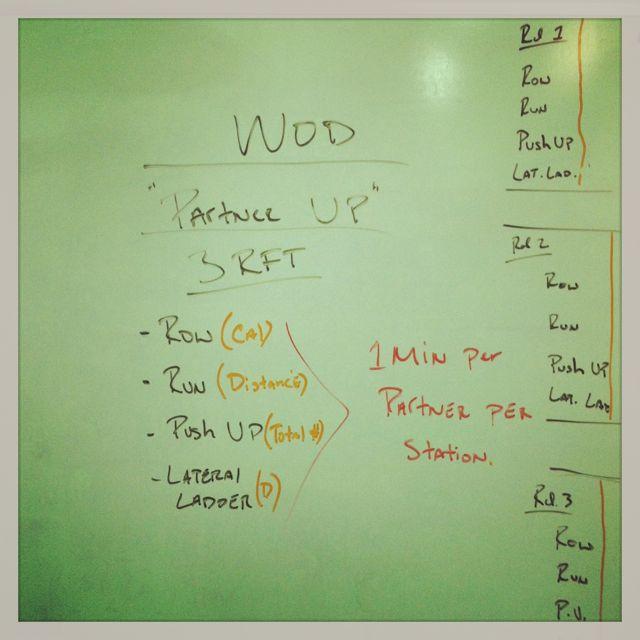 WOD
"Partner UP"
3 RFT
- Row (Cal)
- Run (Distance)
- Push UP (Total #)
- Lateral
Ladder (D)
1 Min per
Partner per
Station.
Rd 1
Row
Run
Push UP
Lat. Lad.
Rd 2
Row
Run
Push UP
Lat. Lad
Rd. 3
Row
Run
P.U.